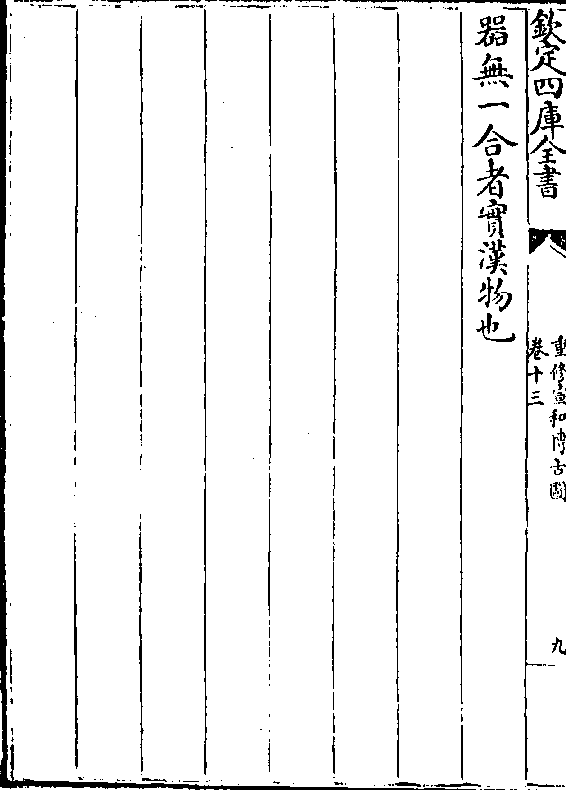 欽定四庫全書
重修宣和博古圖
卷十三
九
器無一合者實漢物也